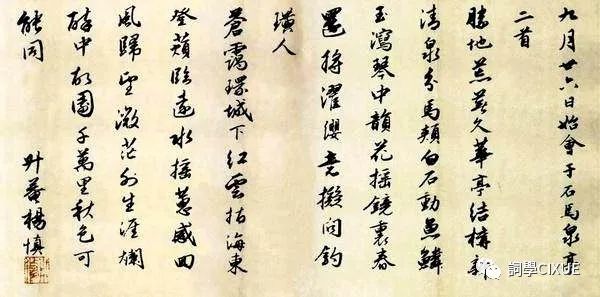 九月廿六日始會于石馬泉亭
二首
勝地荒蕪久華亭結構新
清泉分馬頰白石動魚鱗
玉瀉琴中韻花搖鏡裏春
還将濯纓意擬問釣
璜人
蒼靄環城下紅雲指海東
登蘋臨遠水搖蕙感回
風歸望微茫外生涯爛
醉中故園千萬里秋色可
能同
升菴楊慎
詞學CIXUE